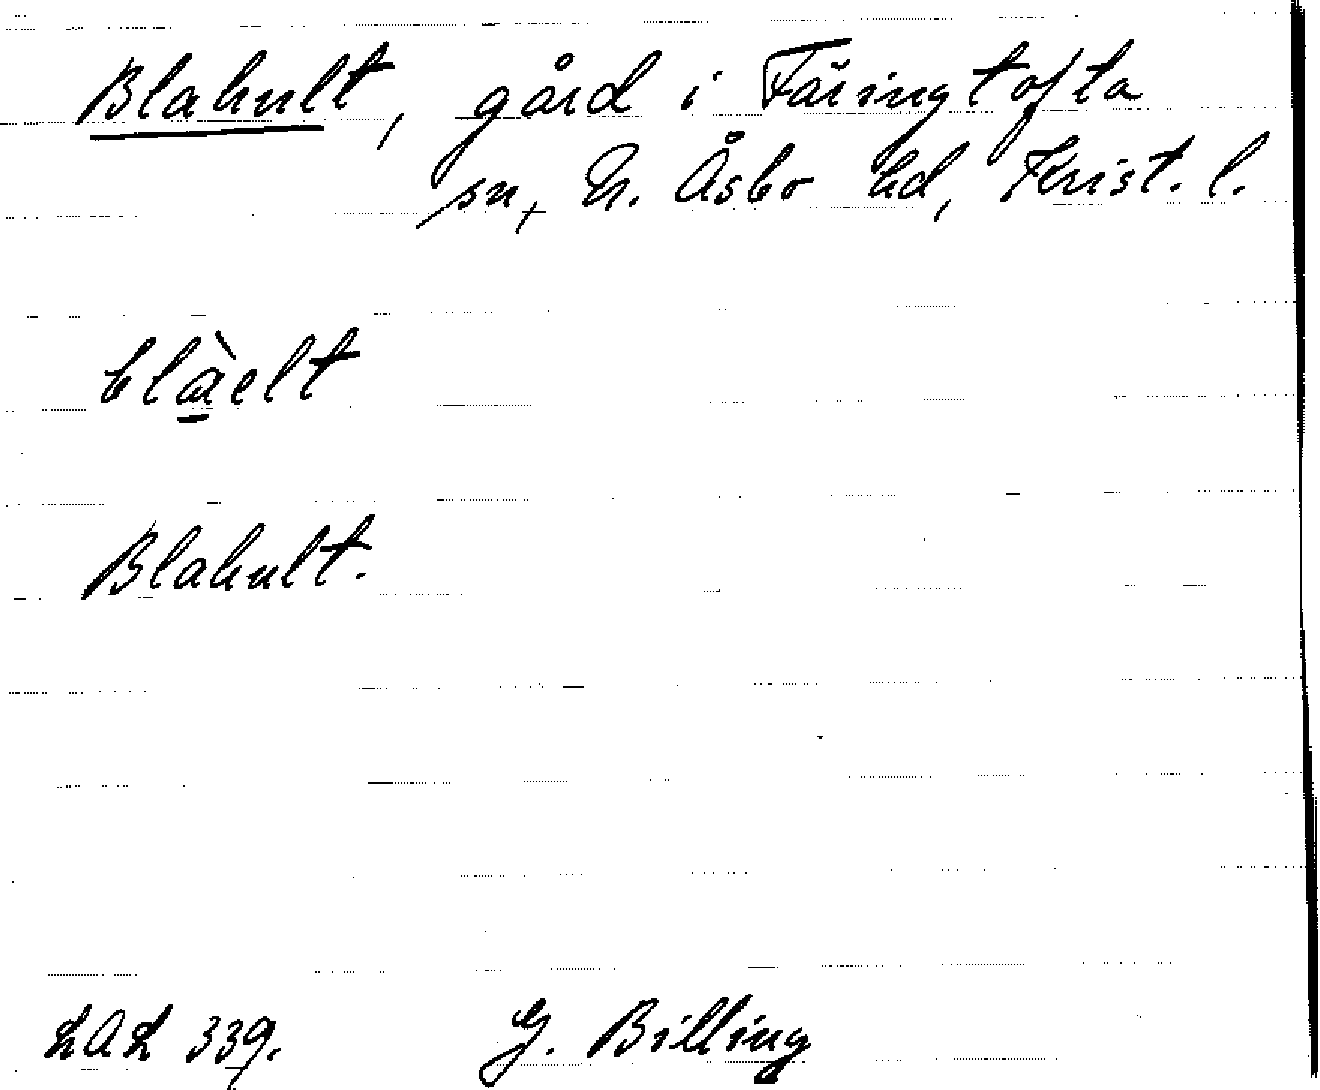 Blahult, gård i Färingtofta
sn, N. Åsbo hd, Krist. l.
blàelt
Blahult.
LAL 339.
G. Billing